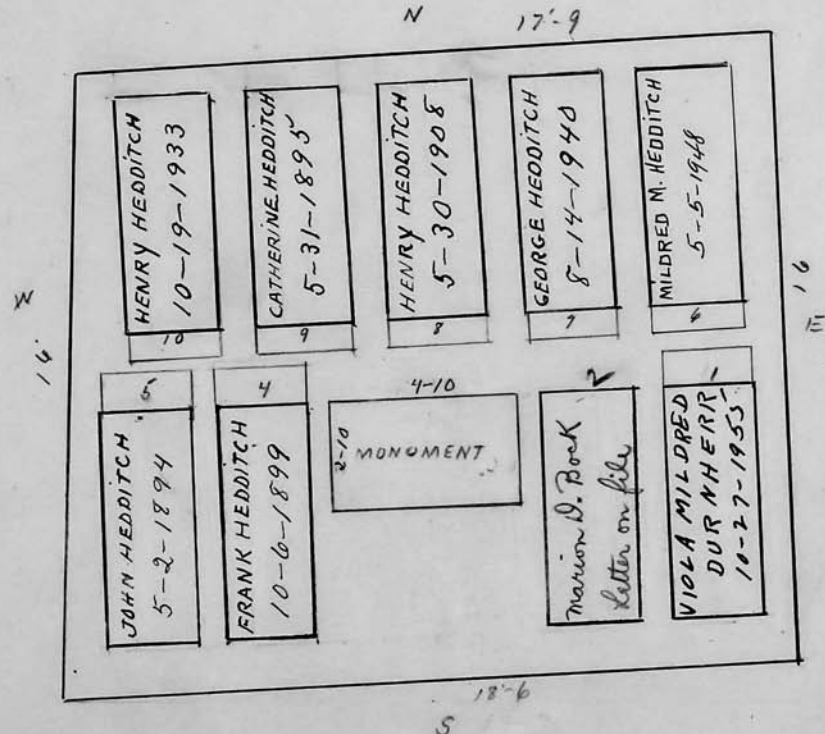 N
17'-9
HENRY HEDDITCH
10-19-1933
10
CATHERINE HEDDITCH
5-31-1895
9
HENRY HEDDITCH
5-30-1908
8
GEORGE HEDDITCH
8-14-1940
7
MILDRED M. HEDDITCH
5-5-1948
6
W
16'
16
E
5
JOHN HEDDITCH
5-2-1894
4
FRANK HEDDITCH
10-6-1899
4-10
2-10
MONUMENT
2
Marion D. Bock
Letter on file
1
VIOLA MILDRED
DURNHERR
10-27-1955
18'-9
S